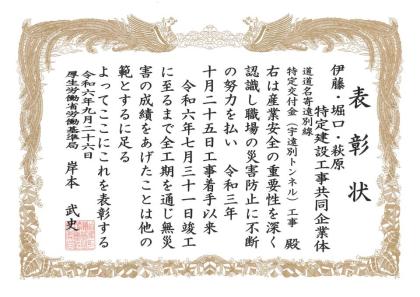 表彰状
伊藤・堀口・萩原
特定建設工事共同企業体
道道名寄遠別線
特定交付金(宇遠別トンネル)工事 殿
右は産業安全の重要性を深く
認識し職場の災害防止に不断
の努力を払い 令和三年
十月二十五日工事着手以来
令和六年七月三十一日竣工
に至るまで全工期を通じ無災
害の成績をあげたことは他の
範とするに足る
よってここにこれを表彰する
令和六年九月二十六日
厚生労働省労働基準局長 岸本 武史